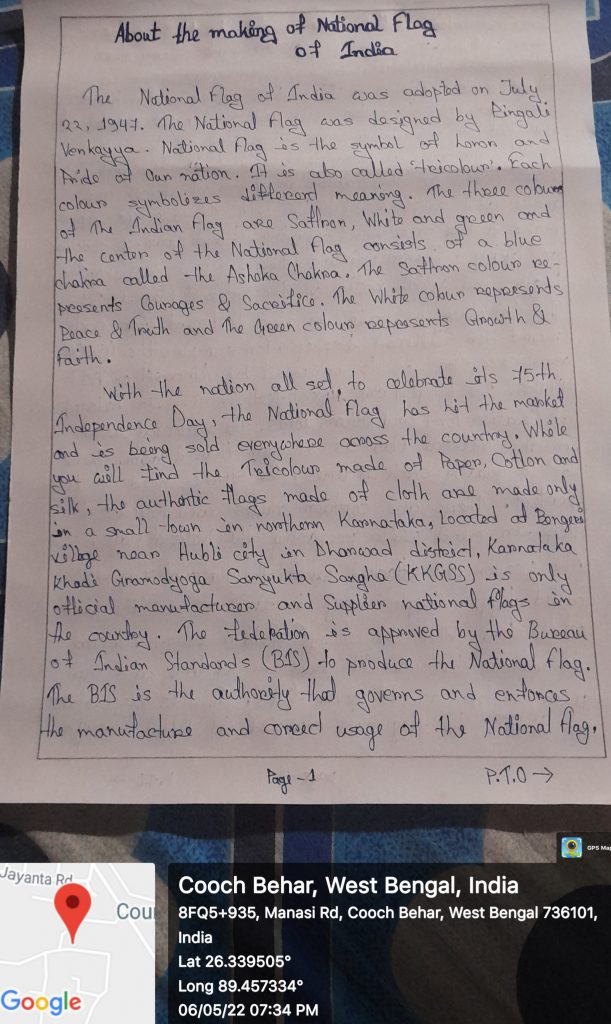 About the making of National Flag
of India
The National Flag of India was adopted on July
22, 1947. The National Flag was designed by Pingali
Venkayya. National Flag is the symbol of honor and
Pride of Our nation. It is also called 'tricolour'. Each
colour symbolizes different meaning. The three colours
of The Indian Flag are Saffron, White and green and
the center of the National Flag consists of a blue
chakra called the Ashoka Chakra. The Saffron colour re-
presents Courages & Sacrifice. The White colour represents
Peace & Truth and The Green colour represents Growth &
faith.
With the nation all set, to celebrate its 75th
Independence Day, the National Flag has hit the market
and is being sold everywhere across the country. While
you will find the Tricolour made of Paper, Cotton and
silk, the authentic flags made of cloth are made only
in a small town in northern Karnataka, Located at Bengeri
village near Hubli city in Dharwad district, Karnataka
Khadi Gramodyoga Samyukta Sangha (KKGSS) is only
official manufacturer and Supplier national flags in
the country. The federation is approved by the Bureau
of Indian Standards (BIS) to produce the National flag.
The BIS is the authority that governs and enforces
the manufacture and correct usage of the National flag.
Page - 1
P.T.O →
GPS Map
Jayanta Rd
Cour
Google
Cooch Behar, West Bengal, India
8FQ5+935, Manasi Rd, Cooch Behar, West Bengal 736101,
India
Lat 26.339505°
Long 89.457334°
06/05/22 07:34 PM